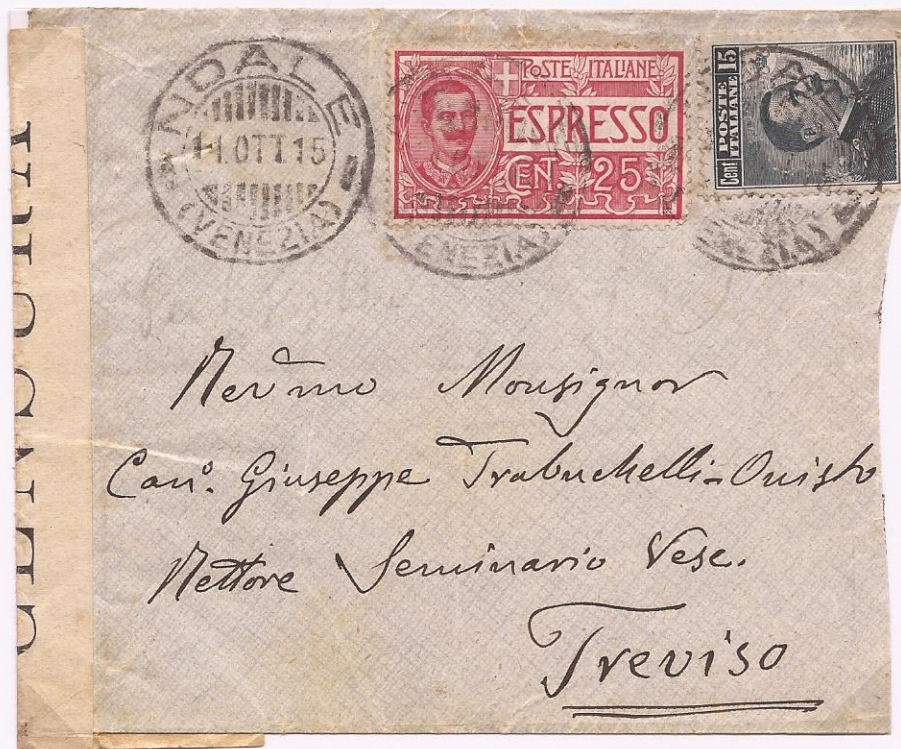 NDALE
11.OTT.15
(VENEZIA)
POSTE ITALIANE
ESPRESSO
CENT. 25
ENEZIA)
Cent 15
POSTE
ITALIANE
ZIA)
CENSURA
Rev̄mo Monsignor
Can.º Giuseppe Trabuchelli-Onisto
Rettore Seminario Vesc.
Treviso